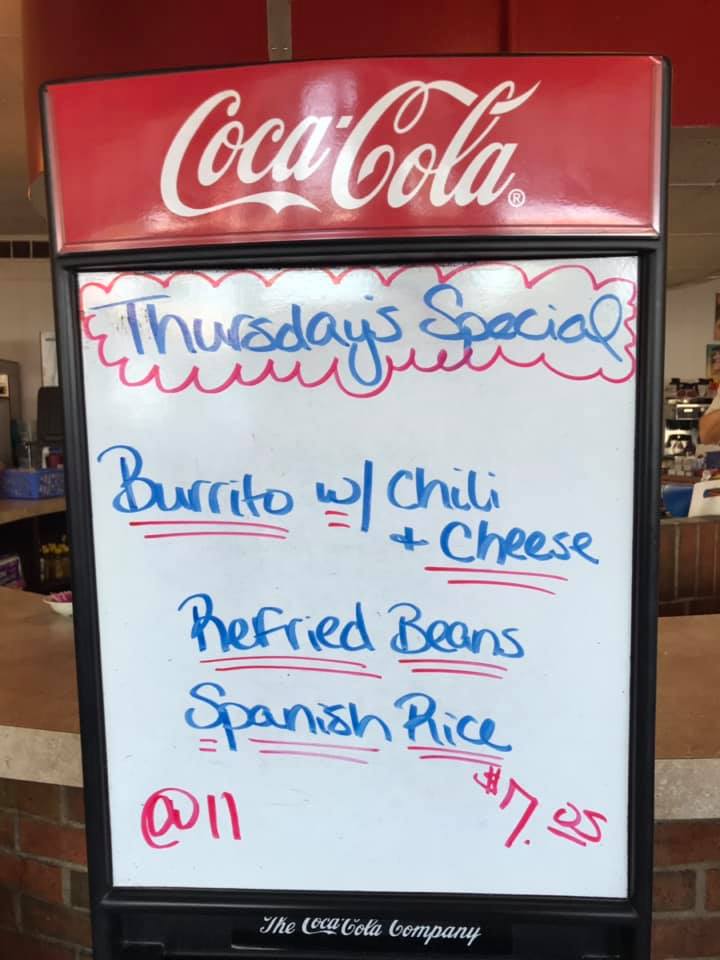 Coca-Cola®
Thursday's Special
Burrito w/ Chili
+ Cheese
Refried Beans
Spanish Rice
@11 $7.05
The Coca-Cola Company